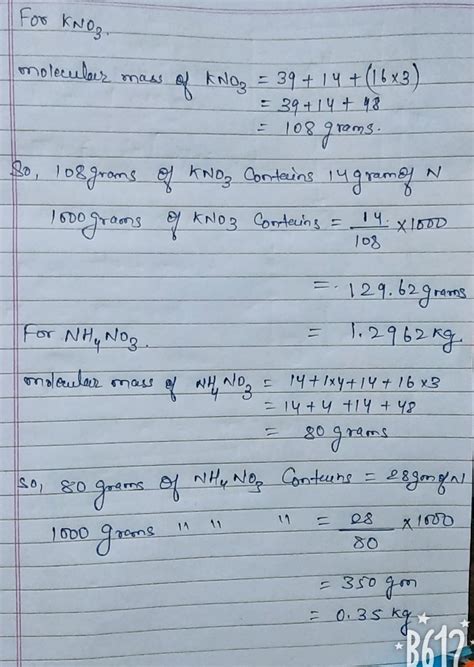 For KNO3.
molecular mass of KNO3 = 39 + 14 + (16x3)
= 39 + 14 + 48
= 108 grams.
So, 108 grams of KNO3 Contains 14 gram of N
1000 grams of KNO3 Contains = 14/108 x 1000
= 129.62 grams
= 1.2962 kg.
For NH4NO3.
molecular mass of NH4NO3 = 14+1x4+14+16x3
= 14 + 4 + 14 + 48
= 80 grams
So, 80 grams of NH4NO3 Contains = 28 gm of N
1000 grams " " " = 28/80 x 1000
= 350 gm
= 0.35 kg
B612